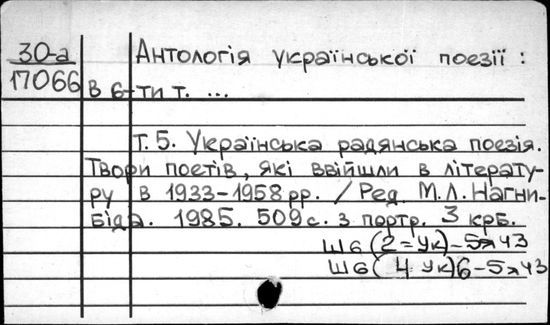 30-а
17066
Антологія української поезії:
В 6-ти т. ...
Т. 5. Українська радянська поезія.
Твори поетів, які ввійшли в літерату-
ру в 1933-1958 рр. / Ред. М.Л. Нагни-
біда. 1985. 509 с. з портр. 3 крб.
Ш6(2=Ук)-5я43
Ш6(4Ук)6-5я43